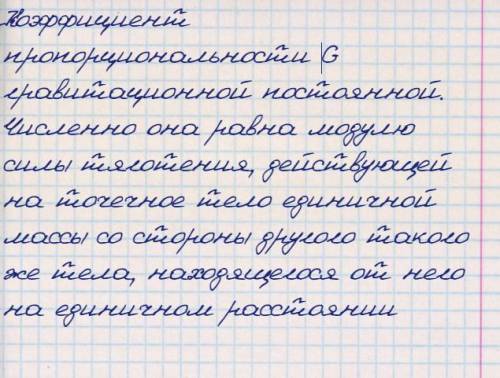 Коэффициент
пропорциональности |G
гравитационной постоянной.
Численно она равна модулю
силы тяготения, действующей
на точечное тело единичной
массы со стороны другого такого
же тела, находящегося от него
на единичном расстоянии